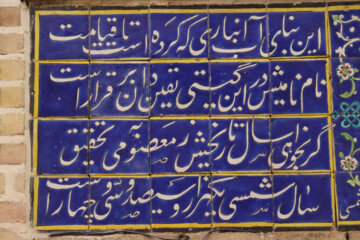 این بنای آب انباری که کرده است تا قیامت
نام نامیش در این گیتی یقین دان برقرار است
گر نخواهی سال تاریخش ز معصومی تحقیق
سال شمسی یکهزار و سیصد و سی و چهار است